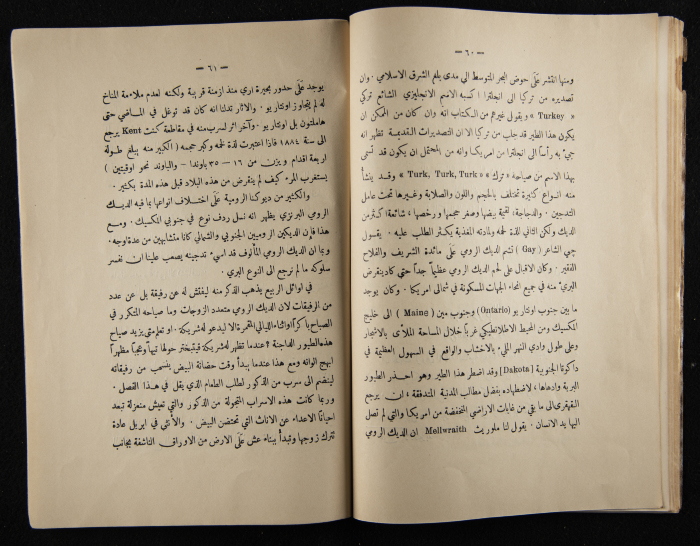 — ٦٠ —
ومنها انتشر على حوض البحر المتوسط الى مدى يلغ الشرق الاسلامي . وان
تصديره من تركيا الى انجلترا اكسبه الاسم الانجليزي الشائع تركي
« Turkey » ويقول غيرهم من الكتاب انه وان كان من الممكن ان
يكون هذا الطير قد جلب من تركيا الا ان التصديرات القديمة تظهر انه
جيء به رأساً الى انجلترا من امريكا وانه من المحتمل ان يكون قد تسمى
بهذا الاسم من صياحه « ترك » « Turk, Turk, Turk » وقد ينشأ
منه انواع كثيرة تختلف بالحجم واللون والصلابة وغيرها تحت عامل
التدجين . والدجاجة، لقيمة بيضها وصغر حجمها ورخصها ، شائعة اكثر من
الديك ولكن الثاني لذة لحمه ولمادته المغذية يكثر الطلب عليه . يقول
جي الشاعر ( Gay ) تشم الديك الرومي على مائدة الشريف والفلاح
الفقير . وكان الاقبال على لحم الديك الرومي عظيماً جداً حتى كاد ينقرض
البري منه في جميع انحاء الجهات المسكونة في شمالي امريكا . وكان يوجد
ما بين جنوب اونتاريو (Ontario) وجنوب مين ( Maine ) الى خليج
المكسيك ومن المحيط الاطلانطيكي غربًا خلال المساحة الملأى بالاشجار
وعلى طول وادي النهر المليء بالاخشاب والواقع في السهول العظيمة في
داكوتا الجنوبية [Dakota] وقد اضطر هذا الطير وهو احذر الطيور
البرية وادهاها ، لاضطهاده بفضل مطالب المدنية المتدفقة ، ان يرجع
القهقرى الى ما بقي من غابات الاراضي المنخفضة من امريكا والتي لم تصل
اليها يد الانسان . يقول لنا ملوريث Mellwraith ان الديك الرومي
— ٦١ —
يوجد على حدود بحيرة اري منذ ازمنة قريبة ولكنه لعدم ملاءمة المناخ
له لم يتجاوز اونتاريو . والآثار تدلنا انه كان قد توغل في الماضي حتى
هاملتون بل اونتاريو . وآخر اثر لسرب منه في مقاطعة كنت Kent يرجع
الى سنة ١٨٨٤ فاذا اعتبرت لذة لحمه وكبر حجمه ( الكبير منه يبلغ طوله
اربعة اقدام ويزن من ١٦ — ٣٥ باوندا — والباوند نحو اوقيتين )
يستغرب المرء كيف لم ينقرض من هذه البلاد قبل هذه المدة بكثير .
والكثير من ديوكنا الرومية على اختلاف انواعها بما فيه الديك
الرومي البرنزي يظهر انه نسل ردف نوع في جنوبي المكسيك . ومع
هذا فإن الديكين الروميين الجنوبي والشمالي كانا متشابهين من عدة اوجه .
وبما ان الديك الرومي المألوف قد اسيء تدجينه يصعب علينا ان نفسر
سلوكه ما لم نرجع الى النوع البري .
في اوائل الربيع يذهب الذكر منه ليفتش له عن رفيقة بل عن عدد
من الرفيقات لان الديك الرومي متعدد الزوجات وما صياحه المتكرر في
الصباح باكراً واثناء الليالي القمرة الا ليدعو له شريكة . او تعلم متى يزيد صياح
هذه الطيور الداجنة ؟ عندما تظهر له شريكة فيتبختر حولها تيهاً وعجباً مظهراً
ابهج الوانه ومع هذا عندما يبدأ وقت حضانة البيض ينسحب من رفيقاته
لينضم الى سرب من الذكور لطلب الطعام الذي يقل في هذا الفصل .
وربما كانت هذه الاسراب المتجولة من الذكور والتي تعيش منعزلة تبعد
احياناً الاعداء عن الاناث التي تحتضن البيض . والأنثى في ابريل عادة
تترك زوجها وتبدأ ببناء عش على الارض من الاوراق الناشفة بجانب